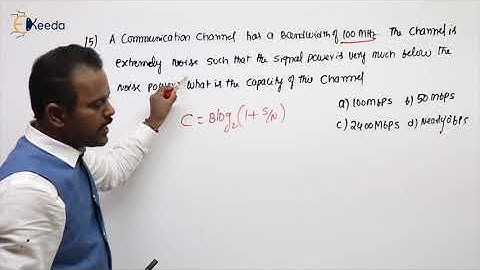 EKeeda
15) A Communication Channel has a Bandwidth of 100 MHz The Channel is
extremely noise such that the signal power is very much below the
noise power what is the Capacity of this Channel
a) 100mbps b) 50 mbps
C = Blog2(1+ S/N)
c) 2400Mbps d) Nearly 0 bps